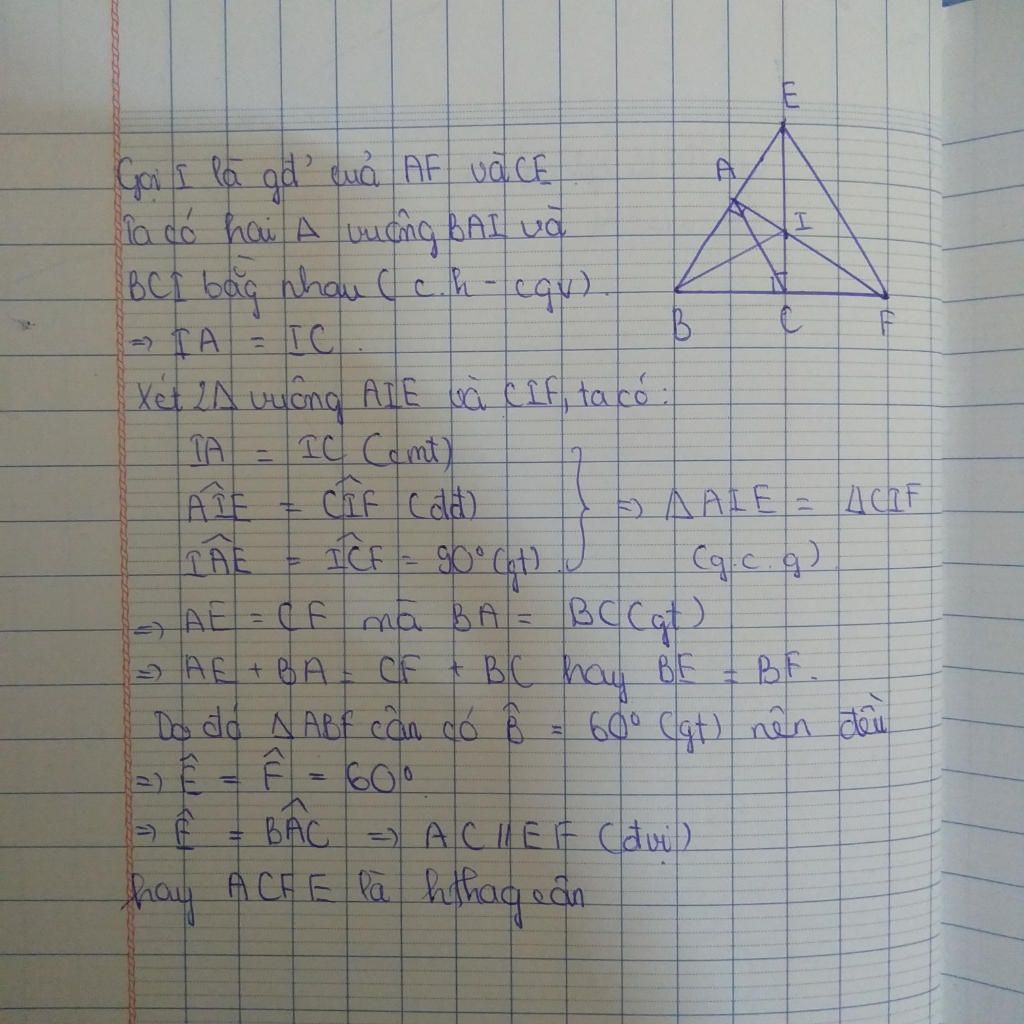 E
A
I
B C F
Gọi I là gđ' của AF và CE
Ta có hai Δ vuông BAI và
BCI bằg nhau ( c.h - cgv).
=> IA = IC.
Xét 2Δ vuông AIE và CIF, ta có:
IA = IC (cmt)
AÎE = CÎF (đđ)
IÂE = IĈF = 90° (gt)
=> ΔAIE = ΔCIF
(g.c.g)
=> AE = CF mà BA = BC (gt)
=> AE + BA = CF + BC hay BE = BF.
Do đó ΔABF cân có B̂ = 60° (gt) nên đều
=> Ê = F̂ = 60°
=> Ê = BÂC => AC // EF (đvị)
hay ACFE là hthag cân